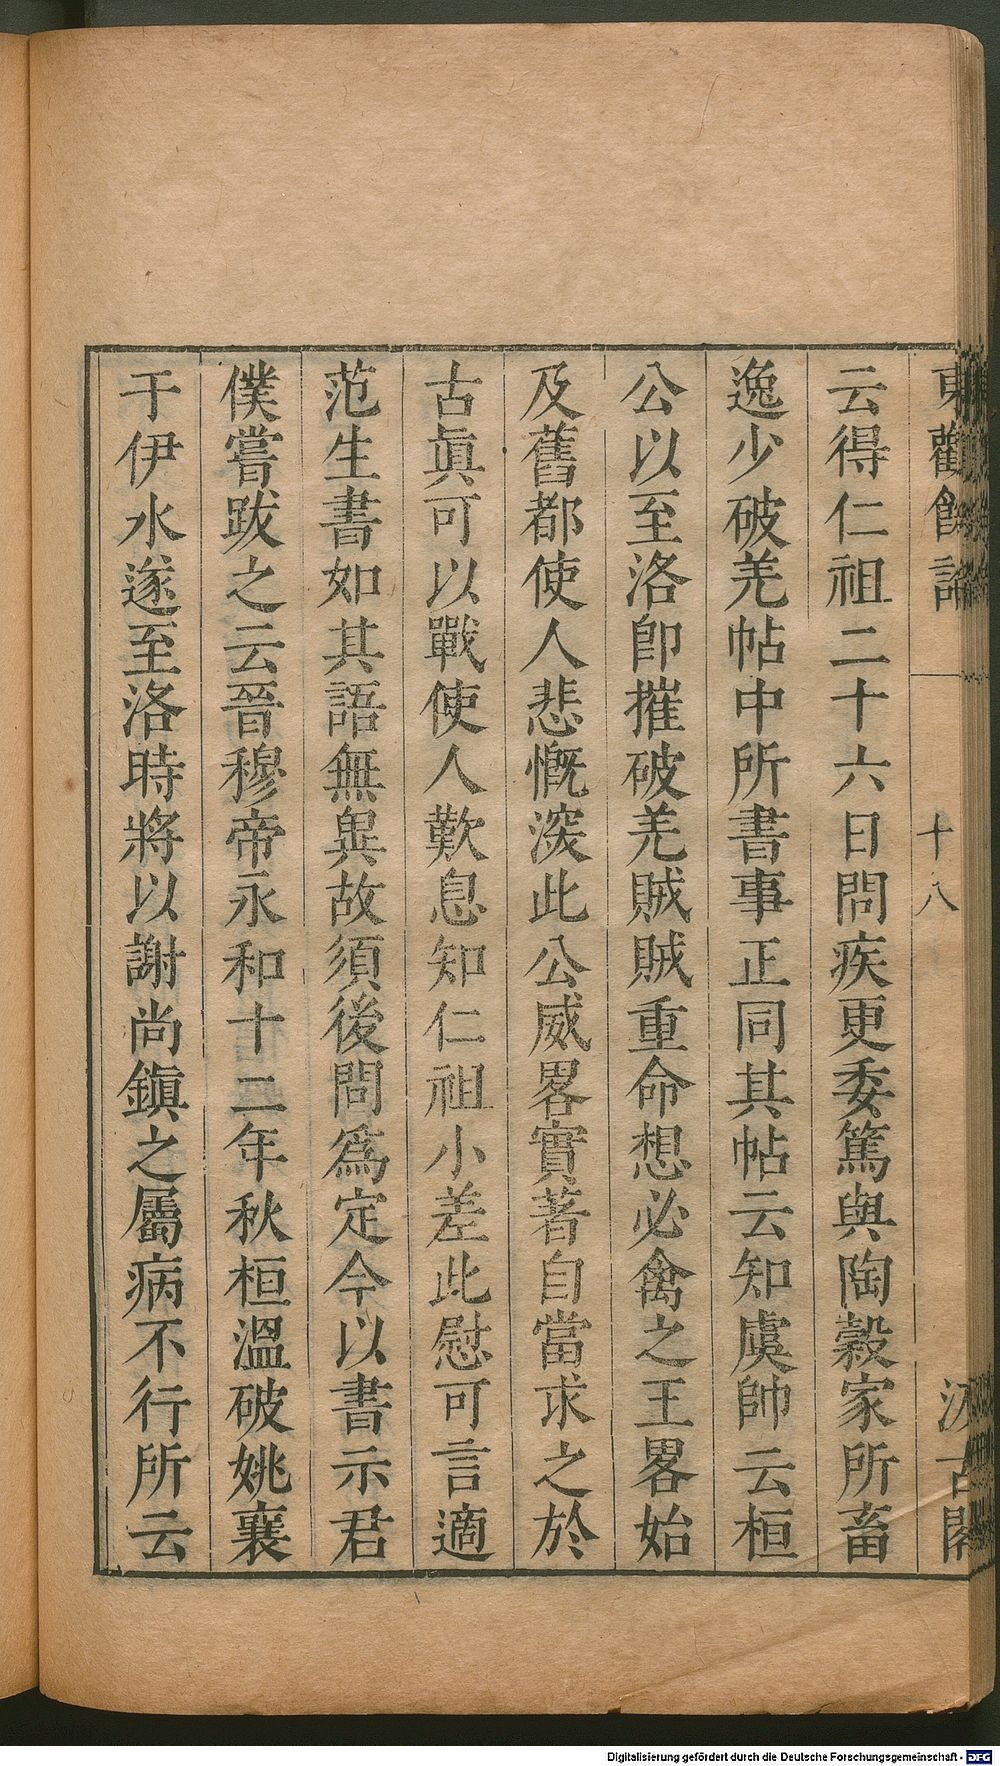 東觀餘論 十八 汲古閣
云得仁祖二十六日問疾更委篤與陶縠家所畜
逸少破羌帖中所書事正同其帖云知虞帥云桓
公以至洛卽摧破羌賊賊重命想必禽之王畧始
及舊都使人悲慨深此公威畧實著自當求之於
古眞可以戰使人歎息知仁祖小差此慰可言適
范生書如其語無異故須後問爲定今以書示君
僕嘗跋之云晉穆帝永和十二年秋桓溫破姚襄
于伊水遂至洛時將以謝尚鎭之屬病不行所云
Digitalisierung gefördert durch die Deutsche Forschungsgemeinschaft - DFG